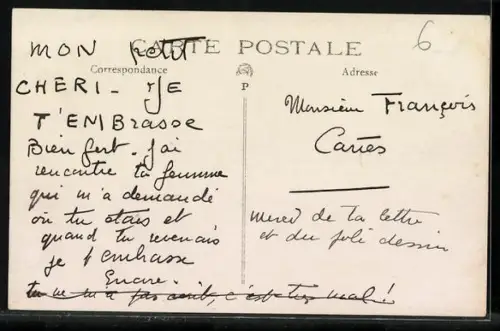 CARTE POSTALE
Correspondance
Adresse
P
6
MON petit
CHERI - JE
T'EMBRASSE
Bien fort. J'ai
rencontré ta femme
qui m'a demandé
où tu étais et
quand tu revenais
je t'embrasse
Encore.
tu ne m'a pas écrit, c'est très mal!
Monsieur François
merci de ta lettre
et du joli dessin